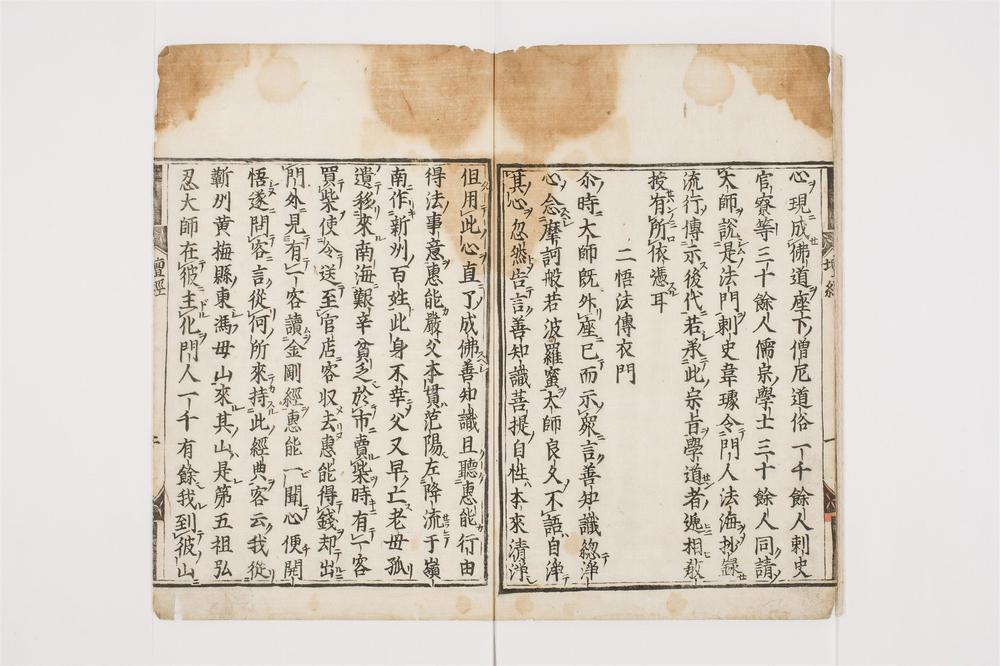 心現成佛道座下僧尼道俗一千餘人刺史
官寮等三十餘人儒宗學士三十餘人同請
大師說是法門刺史韋璩令門人法海抄録
流行傳示後代若承此宗旨學道者遞相教
授有所依憑耳
二悟法傳衣門
尒時大師既外座已而示衆言善知識緫淨
心念摩訶般若波羅蜜大師良久不語自淨
其心忽然告言善知識菩提自性本來清淨
但用此心直了成佛善知識且聽惠能行由
得法事意惠能嚴父本貫范陽左降流于嶺
南作新州百姓此身不幸父又早亡老母孤
遺移來南海艱辛貧乏於市賣柴時有一客
買柴使令送至官店客収去惠能得錢却出
門外見有一客讀金剛經惠能一聞心便開
悟遂問客言從何所來持此經典客云我從
蘄州黄梅縣東馮母山來其山是第五祖弘
忍大師在彼主化門人一千有餘我到彼山
壇經